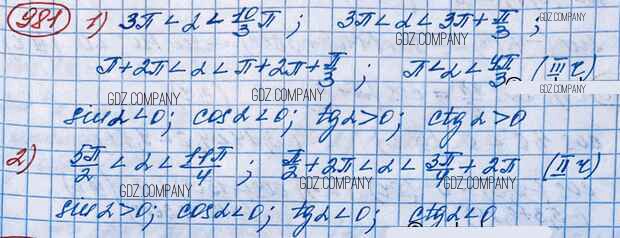 981 1) 3π < α < 10/3 π ; 3π < α < 3π + π/3 ;
GDZ.COMPANY
π + 2π < α < π + 2π + π/3 ; π < α < 4π/3 (III ч)
GDZ.COMPANY GDZ.COMPANY GDZ.COMPANY
sin α < 0 ; cos α < 0 ; tg α > 0 ; ctg α > 0
2) 5π/2 < α < 11π/4 ; π/2 + 2π < α < 3π/4 + 2π (II ч)
GDZ.COMPANY GDZ.COMPANY GDZ.COMPANY
sin α > 0 ; cos α < 0 ; tg α < 0 ; ctg α < 0